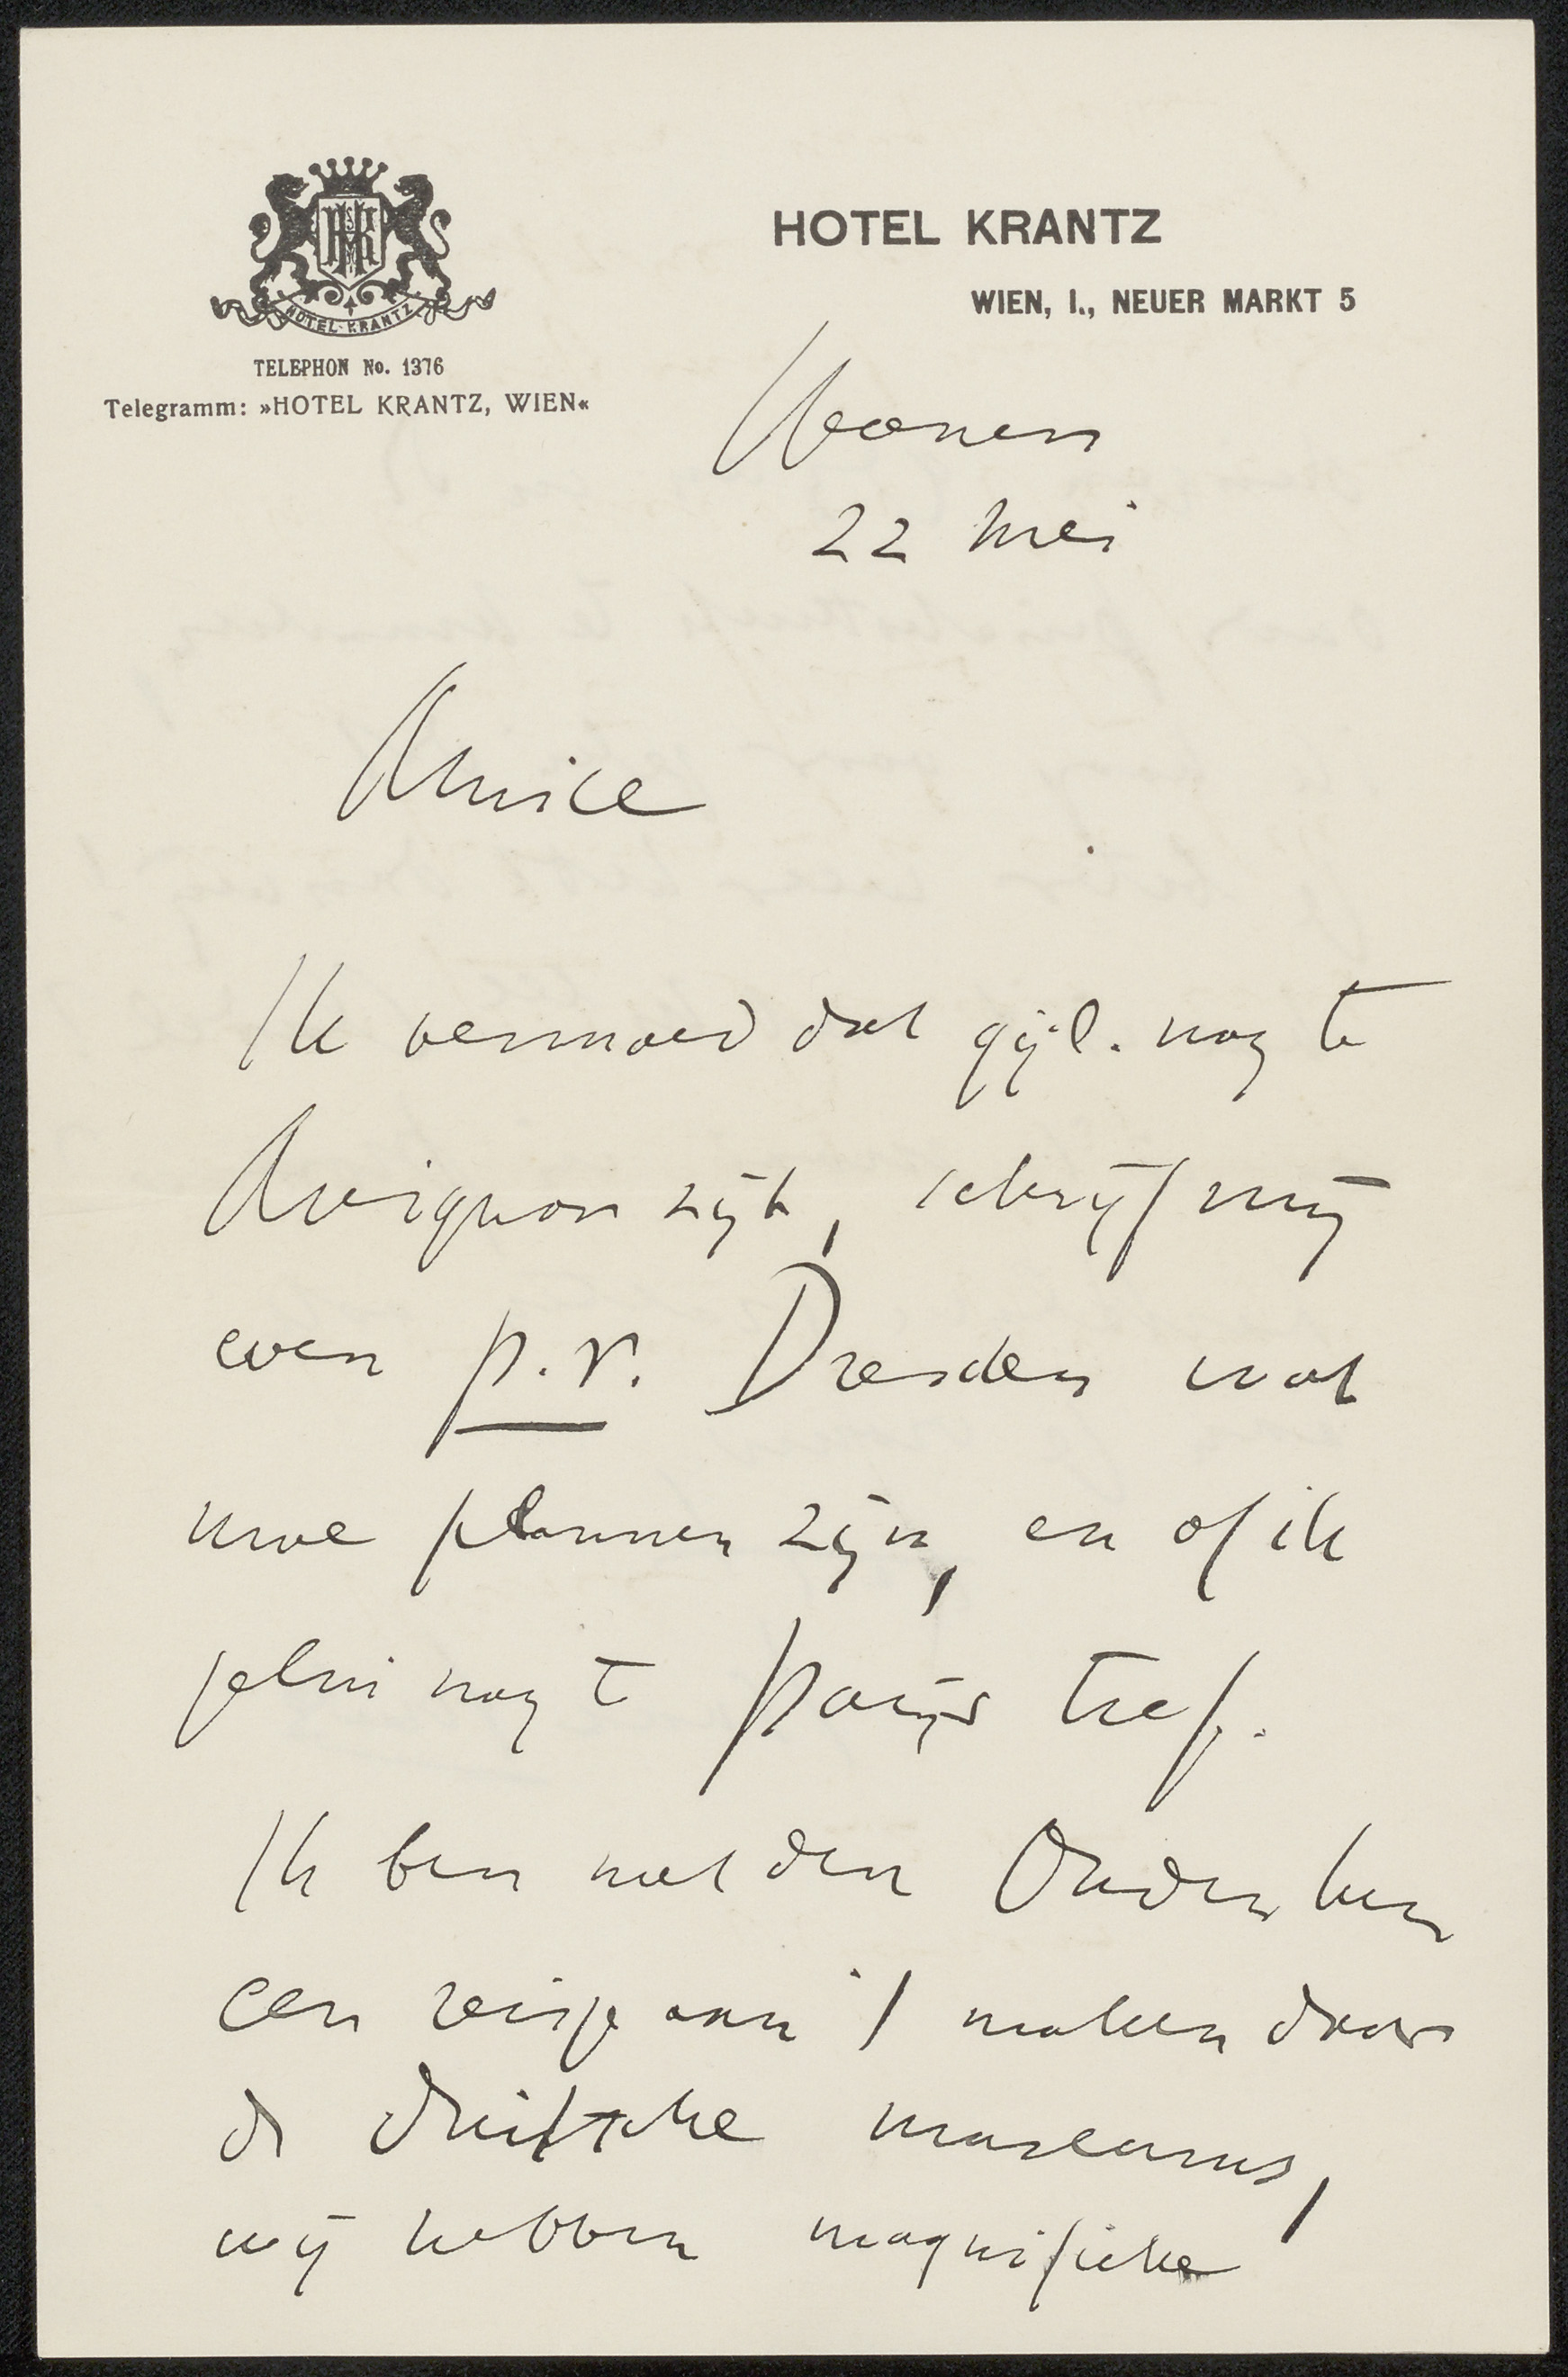 HOTEL KRANTZ
WIEN, I., NEUER MARKT 5
HOTEL KRANTZ
TELEPHON No. 1376
Telegramm: »HOTEL KRANTZ, WIEN«
Weenen
22 Mei
Amice
Ik vermoed dat gijl. nog te
Avignon zijt, schrijf mij
even p.r. Dresden wat
uwe plannen zijn, en of ik
jelui nog te Parijs tref.
Ik ben met den Ouden heer
een reisje aan 't maken door
de Duitsche museums,
wij hebben magnifieke